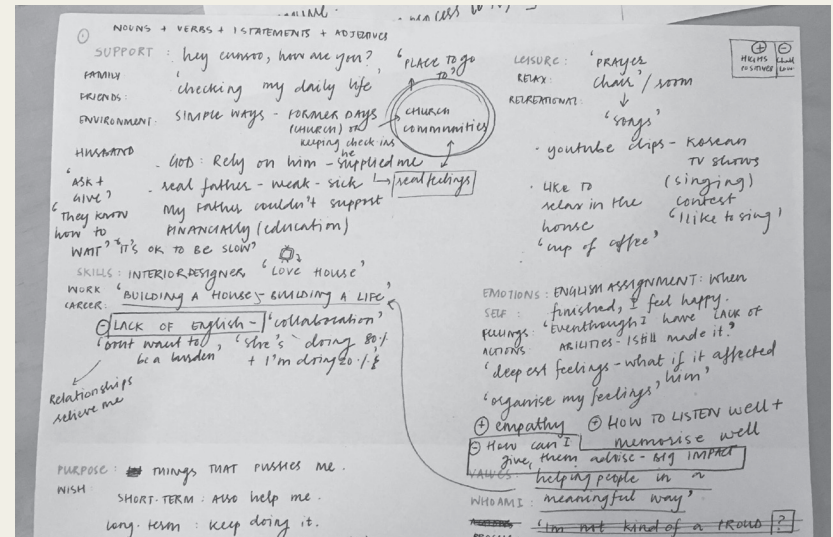 NOUNS + VERBS + I STATEMENTS + ADJECTIVES
SUPPORT : hey eunsoo, how are you?
FAMILY
'checking my daily life'
FRIENDS:
ENVIRONMENT: SIMPLE WAYS - FORMER DAYS
(CHURCH) or
keeping check ins
'PLACE TO GO TO'
CHURCH
communities
real feelings
HUSBAND
- GOD: Rely on him - he supplied me
- real father - weak - sick
My Father couldn't support
FINANCIALLY (education)
'ASK +
GIVE'
'They know
how to
WAIT' 'IT'S OK TO BE SLOW'
SKILLS : INTERIOR DESIGNER 'LOVE HOUSE'
WORK 'BUILDING A HOUSE - BUILDING A LIFE'
CAREER:
- LACK OF English - 'collaboration'
'Dont want to be a burden', 'She's doing 80%
+ I'm doing 20%'
Relationships
relieve me
PURPOSE : THINGS THAT PUSHES ME.
WISH
SHORT-TERM : Also help me.
Long-term : Keep doing it.
+ HIGHS
POSITIVES
-
LOW
LEISURE: 'PRAYER
RELAX: chair'/room
RECREATIONAL:
'songs'
- youtube clips - Korean
TV shows
(singing)
contest
'I like to sing'
- LIKE TO
relax in the
house
'cup of coffee'
EMOTIONS : ENGLISH ASSIGNMENT: when
SELF : finished, I feel happy.
FEELINGS : 'Eventhough I have LACK OF
ACTIONS ABILITIES - I still made it.'
'deepest feelings - what if it affected
him'
'organise my feelings'
+ empathy + HOW TO LISTEN well +
memorise well
- How can I
give them advise - BIG IMPACT
VALUES: 'helping people in a
WHO AM I : meaningful way'
'Im not kind of a PROUD ?